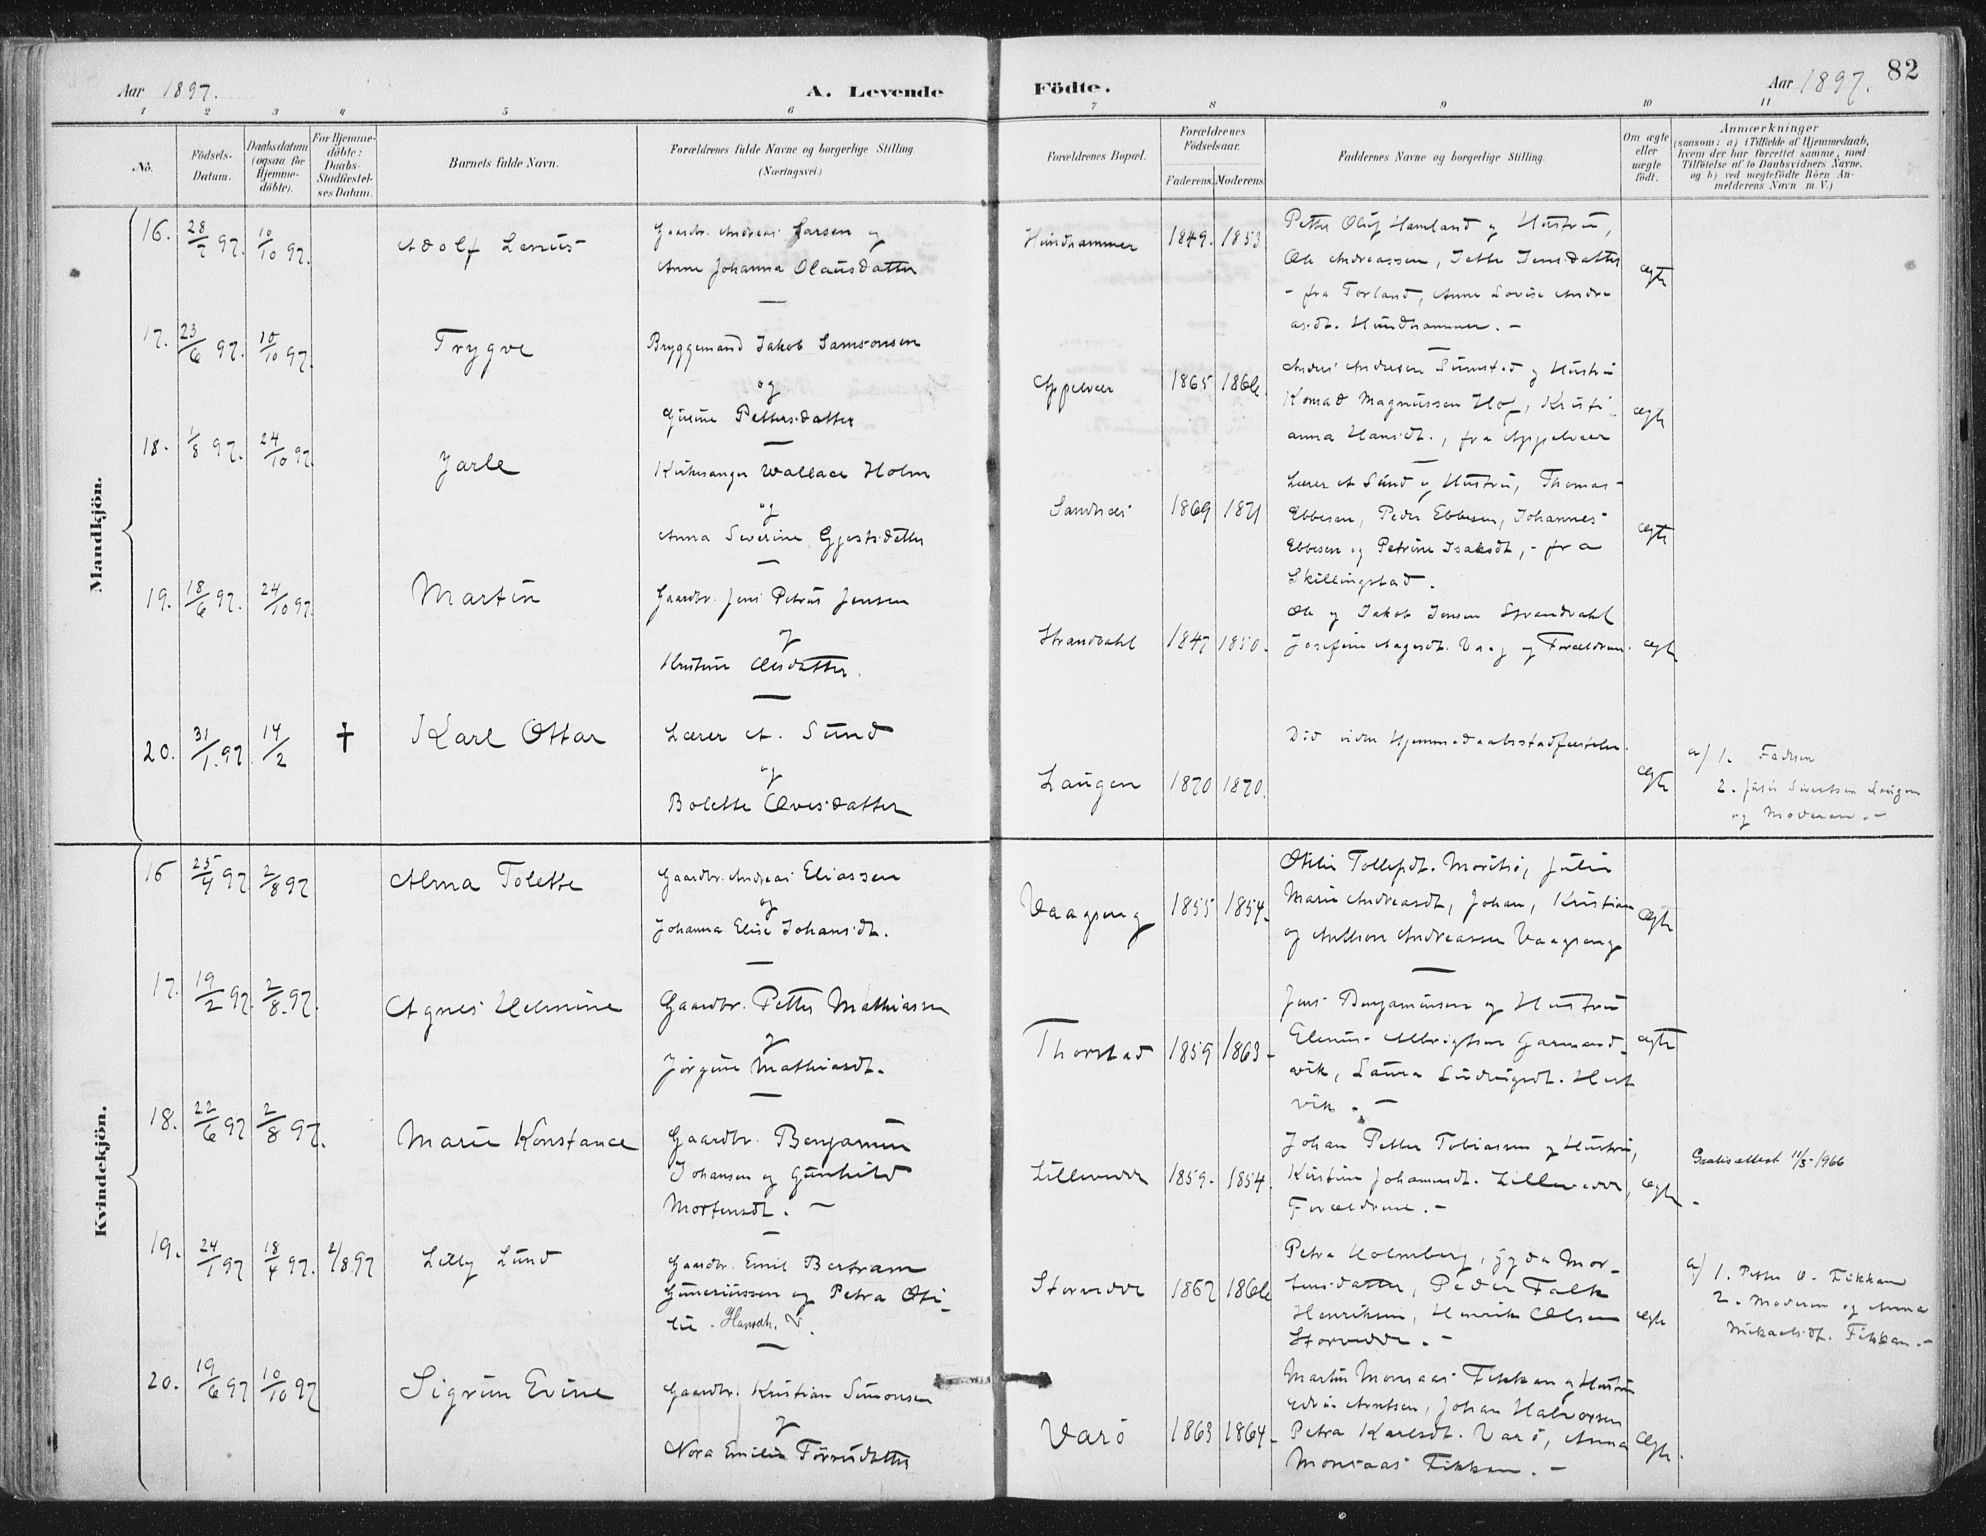 82
Aar 1897.
A. Levende Födte.
Aar 1897.
1 2 3 4 5 6 7 8 9 10 11
No.
Födsels-Datum.
Daabsdatum (ogsaa for Hjemme-döbte).
For Hjemme-döbte: Daabs-Stadfæstel-ses Datum.
Barnets fulde Navn.
Forældrenes fulde Navne og borgerlige Stilling.
(Næringsvei.)
Forældrenes Bopæl.
Forældrenes Födselsaar.
Faderens. Moderens.
Faddernes Navne og borgerlige Stilling.
Om ægte eller uægte födt.
Anmærkninger
(saasom: a) i Tilfælde af Hjemmedaab,
hvem der har forrettet samme, med
Tilföielse af to Daabsvidners Navne.
og b) ved uægtefödte Börn An-
melderens Navn m. V.)
Mandkjön.
16. 28/7 97. 10/10 97. Adolf Lenus
Gaardbr. Andreas Larsen og
Anne Johanna Olausdatter
Hundhammer 1849. 1853
Petter Oluf Hamland og Hustru,
Ole Andreassen, Jette Jensdatter
- fra Forland, Anne Lovise Andre
asdt. Hundhammer. -
ægte
17. 23/6 97. 10/10 97. Trygve
Bryggemand Jakob Samsonsen
og
Gurine Pettersdatter
Appelvær 1865 1866.
Anders Andersen Sumstad og Hustru
Konrad Magnussen Hof, Kristi-
anna Hansdt., fra Appelvær
ægte
18. 1/8 97. 24/10 97. Jarle
Kirkesanger Wallace Holm
og
Anna Severine Gjertsdatter
1869 1871
Lærer A Sund og Hustru, Thomas
Ebbesen, Peder Ebbesen, Johannes
Ebbesen og Petrine Isaksdt, - fra
Skillingstad.
ægte
19. 18/6 97. 24/10 97. Martin
Gaardbr. Jens Petrus Jensen
og
Kristine Olesdatter.
Strandvahl 1847 1850.
Ole og Jakob Jensen Strandvahl
Josefine Aagesdt. Vaag og Forældrene.
ægte
20. 31/1 97. 14/2 † Karl Ottar
Lærer A. Sund
og
Bolette Olvesdatter
Laugen 1870 1870.
Död uden Hjemmedaabsstadfæstelse.
ægte
a) 1. Faderen
2. Julie Sivertsen Laugen
og Moderen. -
Kvindekjön.
16 25/4 97 2/8 97 Alma Tolette
Gaardbr. Andreas Eliassen
og
Johanna Elise Johansdt.
Vaagseng 1855 1854-
Otelie Tollefsdt. Moritsö, Julie
Marie Andreasdt, Johan, Kristian
og Anthon Andreassen Vaagseng
ægte
17. 19/2 97. 2/8 97. Agnes Helmine
Gaardbr. Petter Mathiassen
og
Jörgine Mathiasdt.
Thorstad 1859 1863-
Jens Benjaminsen og Hustru
Elenus Albrigtsen Garmand-
vik, Laura Ludvigsdt. Hest
vik. -
ægte
18. 22/6 97 2/8 97. Marie Konstance
Gaardbr. Benjamin
Johansen og Gunhild
Mortensdt. -
Lillevedde 1859. 1854.
Johan Petter Tobiassen og Hustru,
Kristine Johannesdt. Lillevedde,
Forældrene. -
ægte
Gratisattest 11/3-1966
19. 24/1 97 18/4 97. 2/8 97 Lilly Lund
Gaardbr. Emil Bertram
Gunneriussen og Petra Oti-
lie. Hansdt. V.
Storvedde 1867 1866
Petra Holmberg, Gyda Mor-
tensdatter, Peder Falk
Henriksen, Henrik Olsen
Storvedde. -
ægte
a) 1. Petter O. Fikkan
2. Moderen og Anna
Mikaelsdt. Fikkan. -
20. 19/6 97 10/10 97 Sigrun Evine
Gaardbr. Kristian Simonsen
og
Nora Emilie
Varö 1863 1864-
Martin Monsaas Fikkan og Hustru
Arntsen, Johan Halvorsen
Petra Karlsdt. Varö, Anna
Monsaas Fikkan. -
ægte.